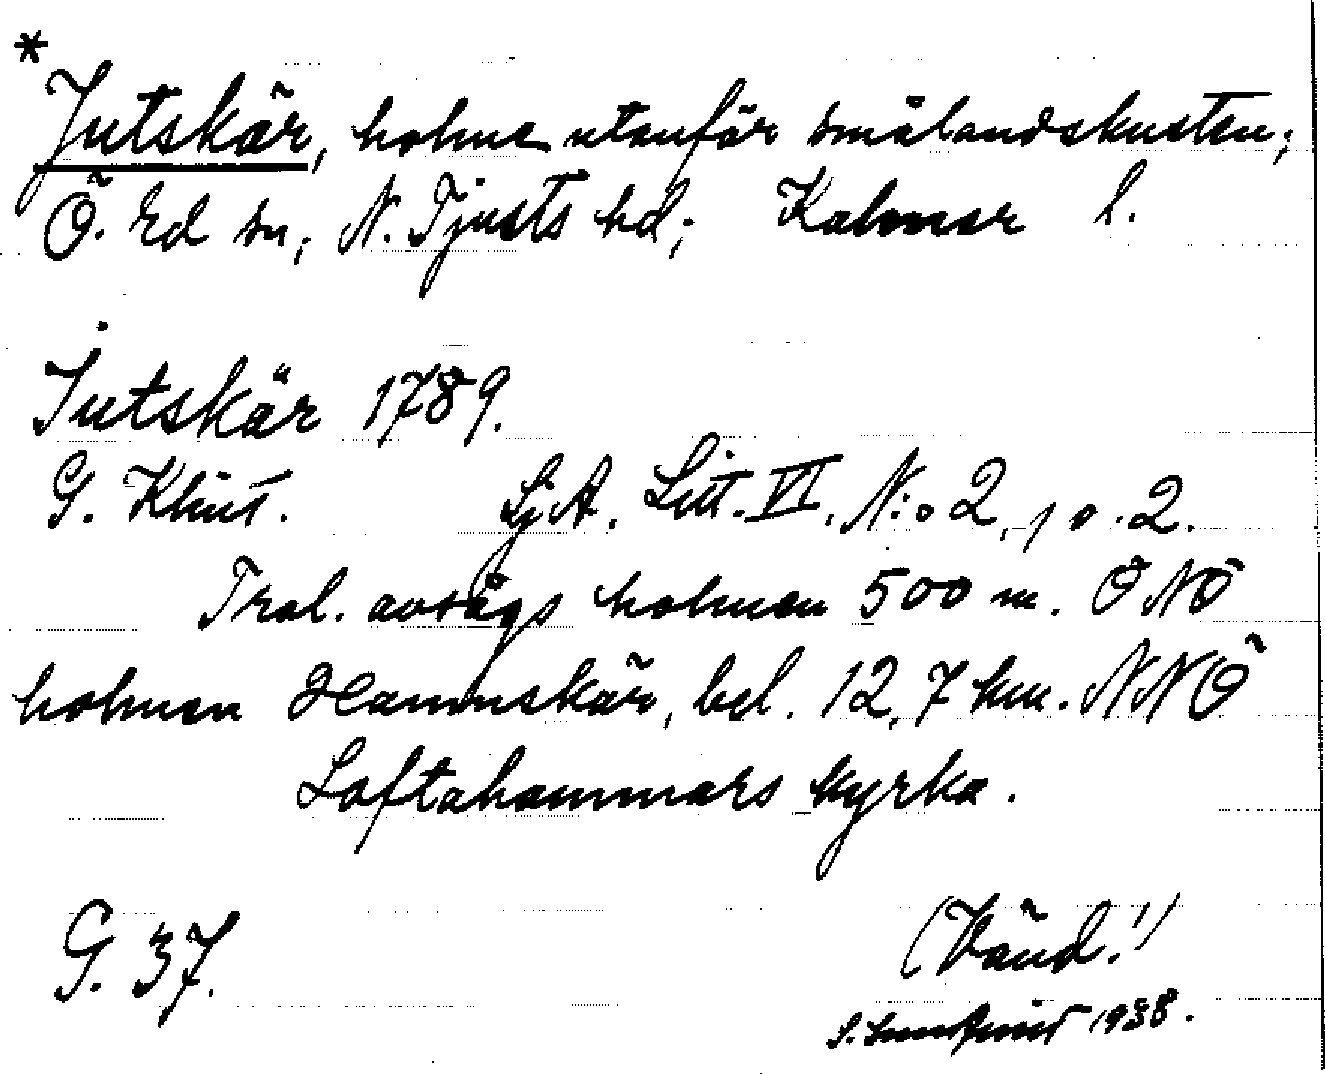 *
Jutskär, holme utanför smålandskusten;
Ö. Ed sn; N. Tjusts hd; Kalmar l.
Jutskär 1789.
G. Klint. Sj.A. Litt. VI, N:o 2, p. 2.
Trol. avsågs holmen 500 m. ÖNÖ
holmen Hamnskär, bel. 12,7 km. NNÖ
Loftahammars kyrka.
G. 37. (Vänd!)
1938.